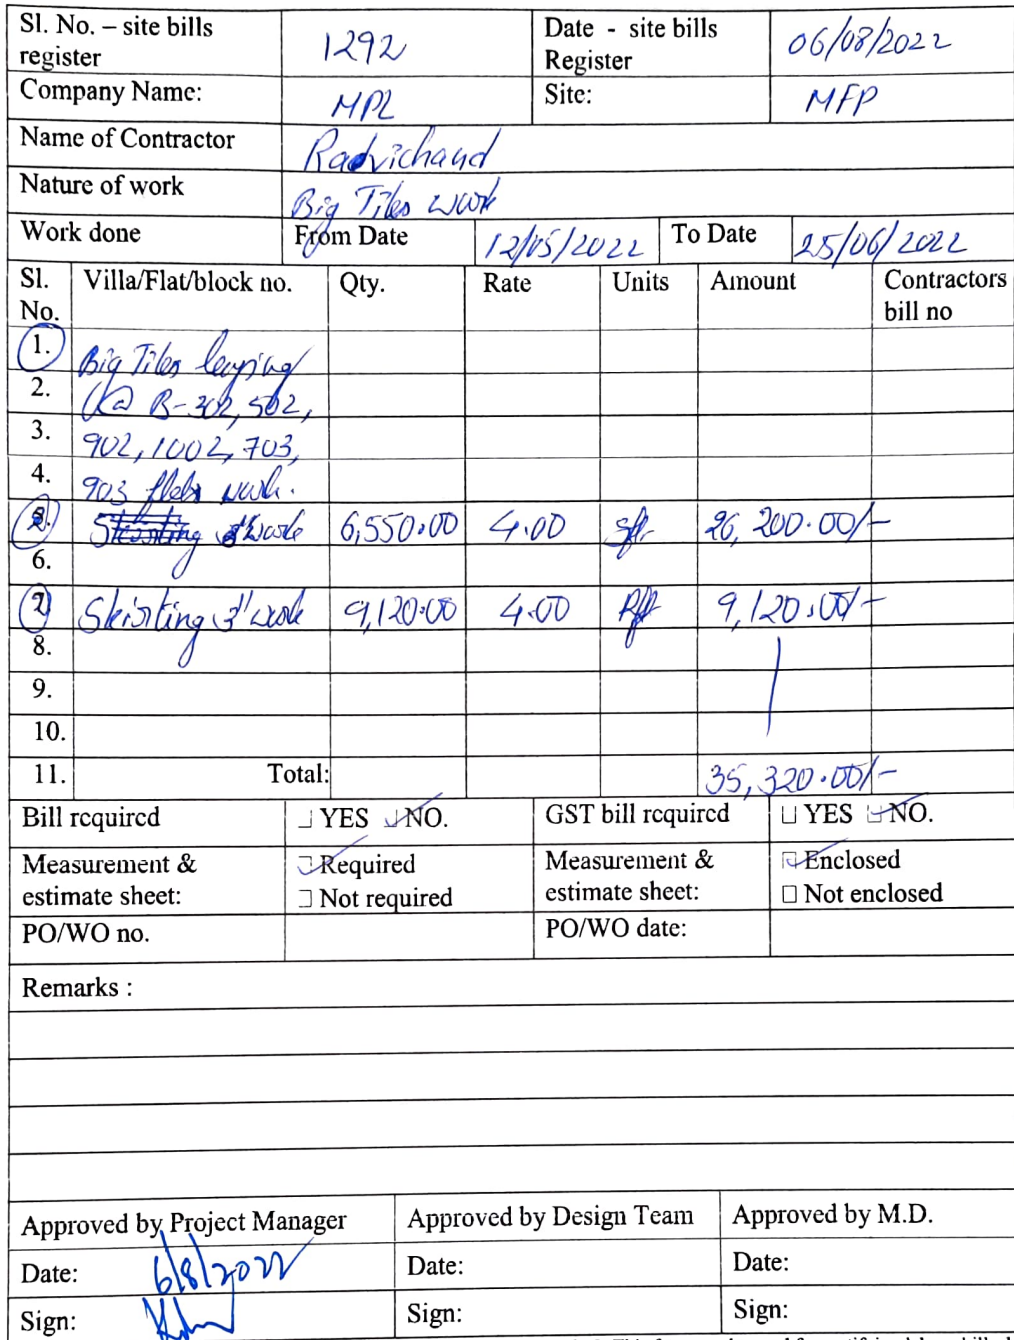 Sl. No. – site bills register 1292 Date - site bills Register 06/08/2022
Company Name: MPL Site: MFP
Name of Contractor Radvichand
Nature of work Big Tiles work
Work done From Date 12/05/2022 To Date 25/06/2022
Sl. No. Villa/Flat/block no. Qty. Rate Units Amount Contractors bill no
1. Big Tiles
2. @ B-302, 502,
3. 902, 1002, 703,
4. 903
2. work 6,550.00 4.00 sft 26,200.00/-
6.
Skirting 3" work 9,120.00 4.00 Rft 9,120.00/-
8.
9.
10.
11. Total: 35,320.00/-
Bill required YES NO. GST bill required YES NO.
Measurement & estimate sheet: Required Not required Measurement & estimate sheet: Enclosed Not enclosed
PO/WO no. PO/WO date:
Remarks :
Approved by Project Manager Approved by Design Team Approved by M.D.
Date: 6/8/2022 Date: Date:
Sign: Sign: Sign: